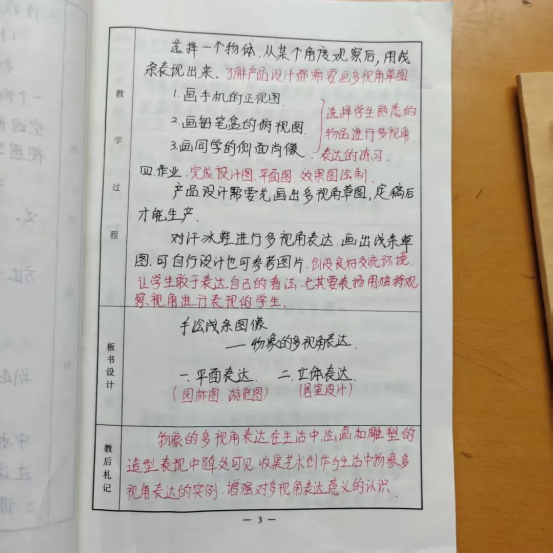 选择一个物体,从某个角度观察后,用线
条表现出来。了解产品设计都需要画多视角草图
1.画手机的正视图
2.画铅笔盒的俯视图
3.画同学的侧面肖像
选择学生熟悉的
物品进行多视角
表达的练习
四.作业.完成设计图.平面图.效果图绘制.
产品设计需要先画出多视角草图,定稿后
才能生产.
对汗冰鞋进行多视角表达.画出线条草
图.可自行设计也可参考图片.创设良好交流环境.
让学生敢于表达自己的看法.尤其要表扬用独特观
察视角进行表现的学生.
教学过程
手绘线条图像
——物象的多视角表达
一.平面表达. 二.立体表达.
(园林图 游览图) (居室设计)
板书设计
物象的多视角表达在生活中.绘画和雕塑的
造型表现中随处可见.收集艺术创作与生活中物象多
视角表达的实例.增强对多视角表达意义的认识.
教后札记
— 3 —